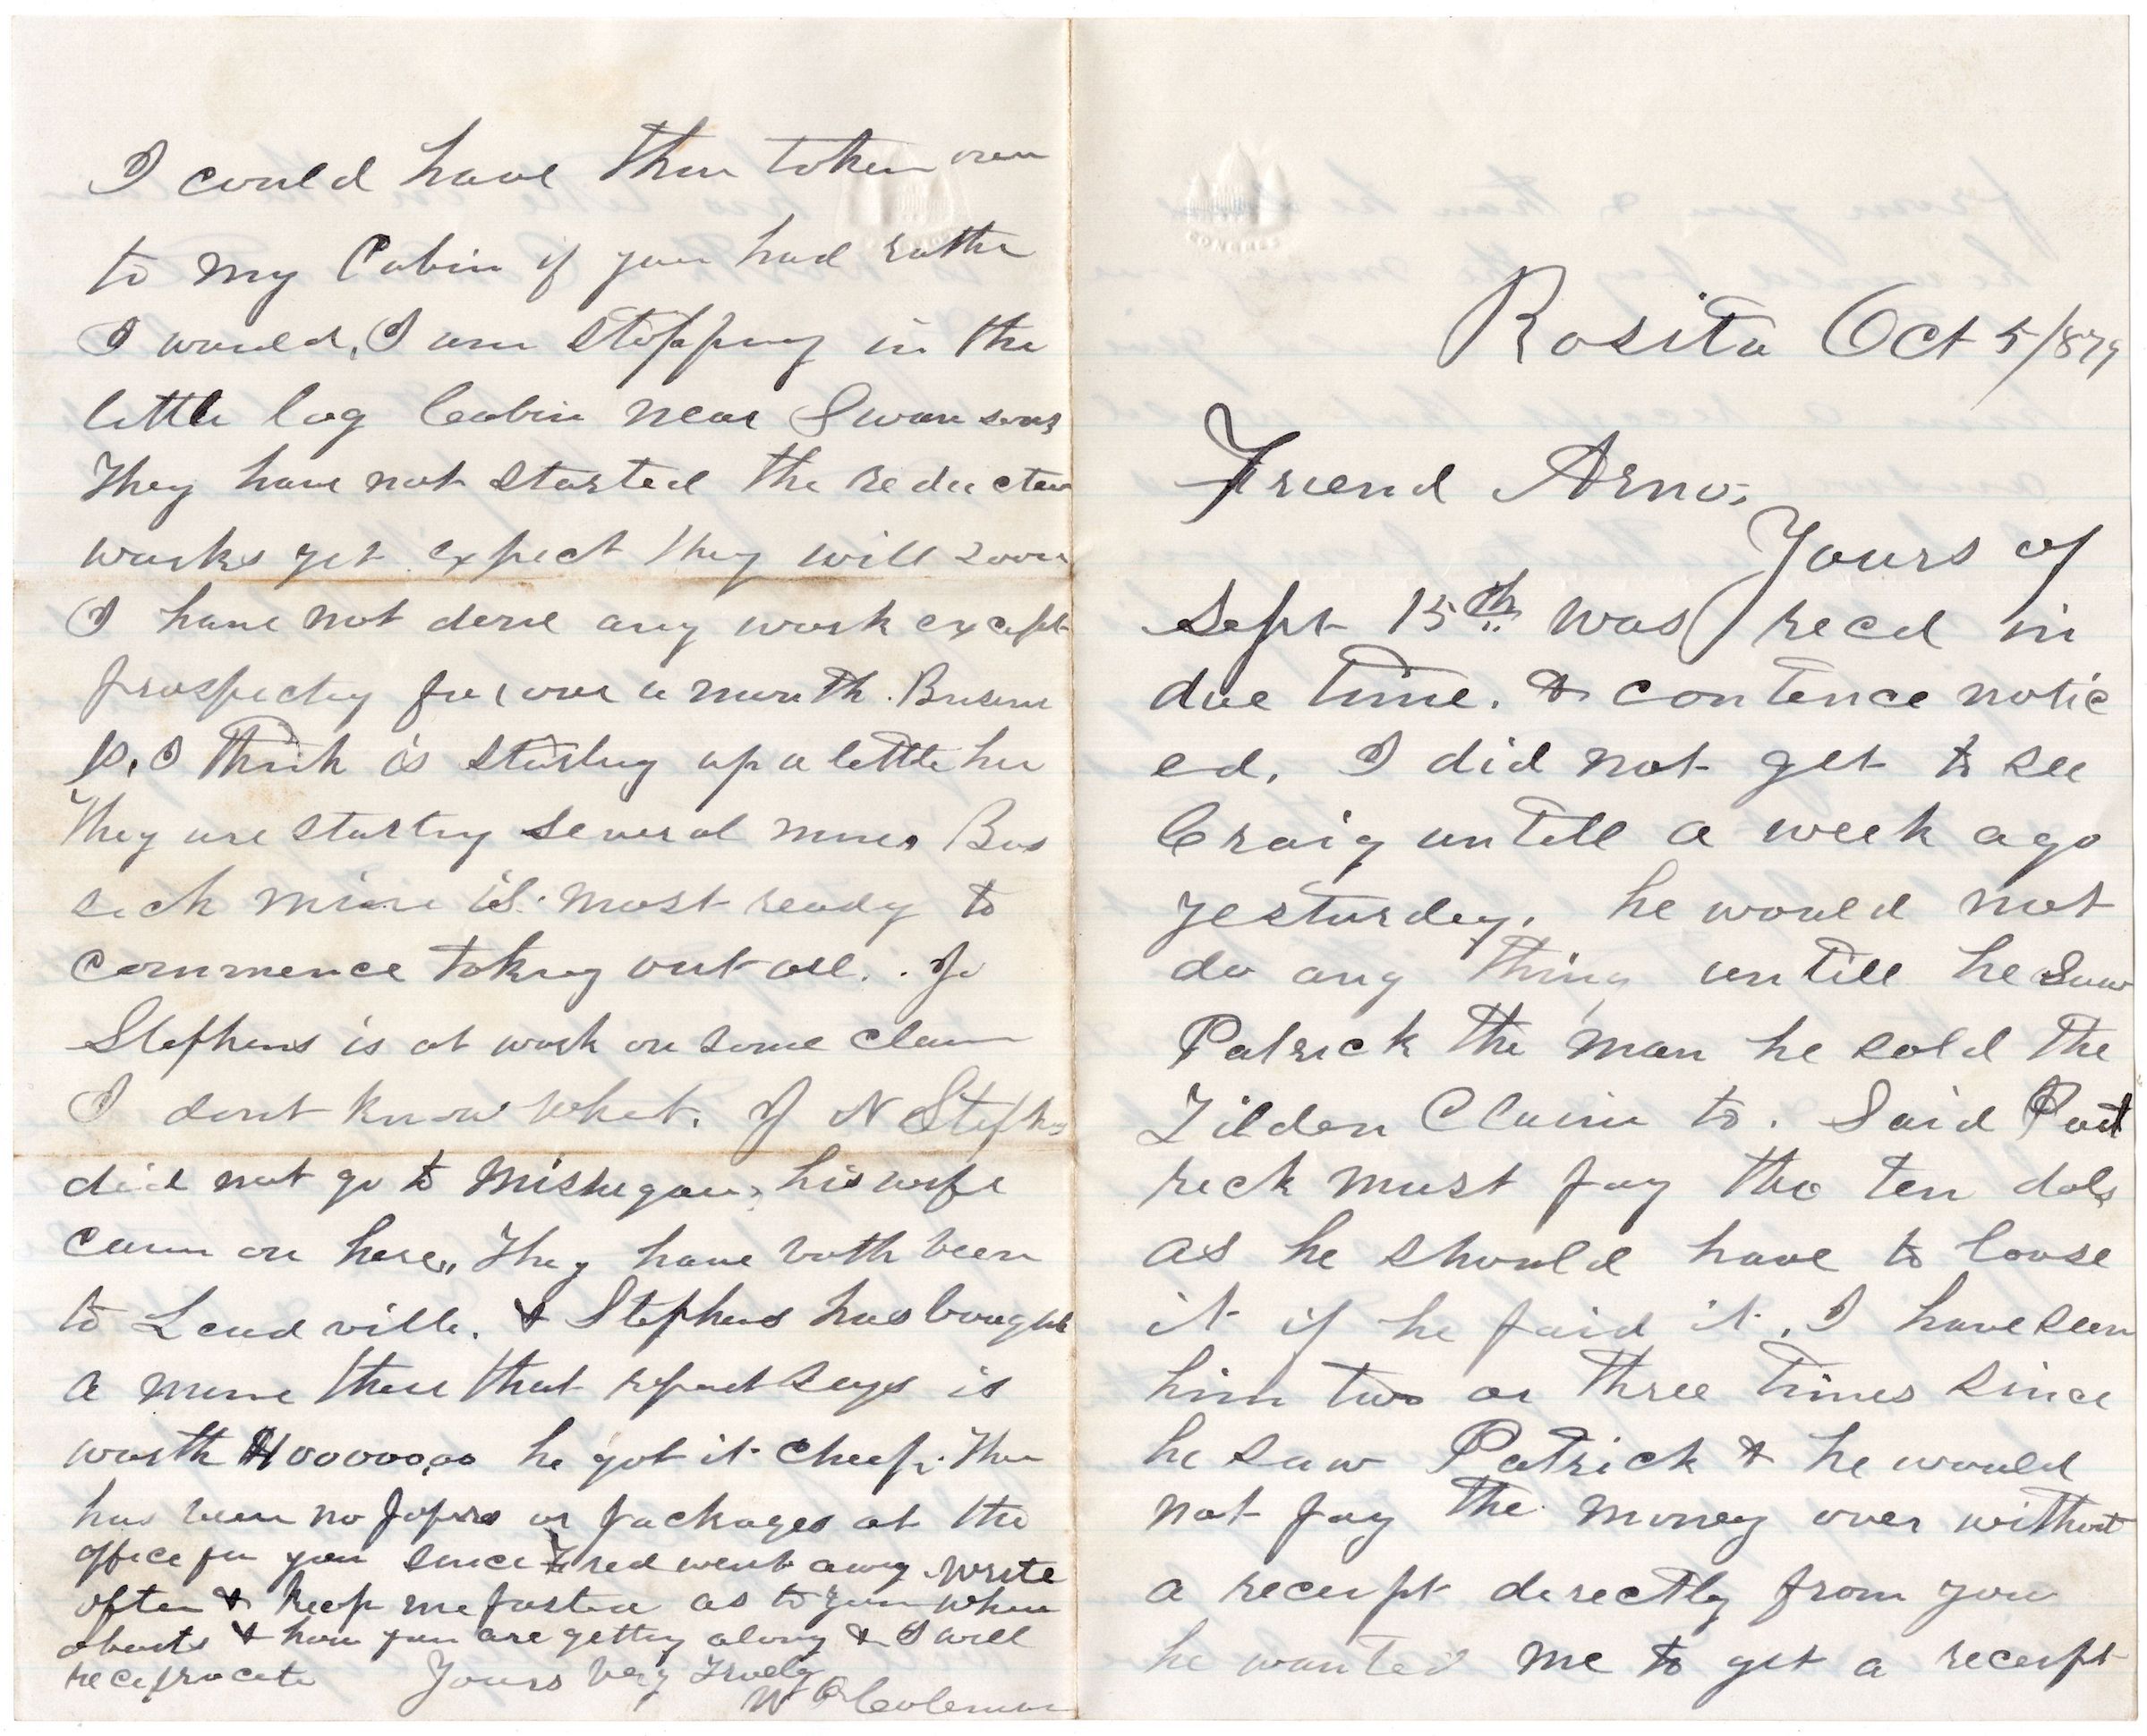 Rosita Oct 5/879
Friend Arno.
Yours of
Sept 15th was recd in
due time. & contence notic
ed. I did not get to see
Craig untill a week ago
yesturdey. he would not
do any thing untill he saw
Patrick the man he sold the
Tilden Claim to. Said Pat
rick must pay the ten dols
as he should have to loose
it if he paid it. I have seen
him two or three times since
he saw Patrick & he would
not pay the money over without
a receipt directly from you
he wanted me to get a receipt
I could have them token over
to my Cabin if you had rather
I would, I am stopping in the
little log Cabin near Swansons
They have not started the reduction
works yet expect they will soon
I have not done any work except
prospecting for over a month. Busine
ss, I think is starting up a little here
They are starting several mines Bas
sick mine is most ready to
commence taking out ore. Jo
Stephens is at work on some claim
I dont know what. J N Stephens
did not go to Miskegan, his wife
came on here,, They have both been
to Leadville. & Stephens has bought
a mine there that report says is
worth $100000.00 he got it cheep. There
has been no papers or packages at the
office for you since Fred went away. write
often & keep me posted as to your where
abouts & how you are getting along & I will
reciprocate Yours Very Truely
W Coleman
CONGRESS